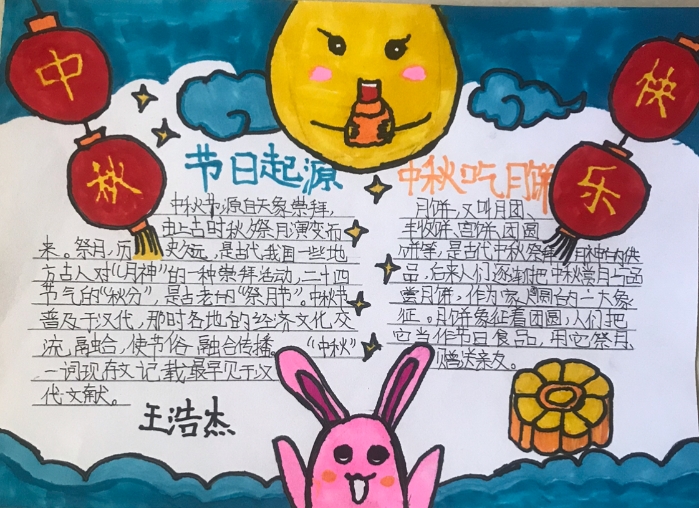 中
秋
快
乐
节日起源
中秋节源自天象崇拜,
由上古时秋夕祭月演变而
来。祭月,历史久远,是古代我国一些地
方古人对“月神”的一种崇拜活动,二十四
节气的“秋分”,是古老的“祭月节”。中秋节
普及于汉代,那时各地的经济文化交
流,融合,使节俗融合传播。“中秋”
一词现存文记载最早见于汉
代文献。
王浩杰
中秋吃月饼
月饼,又叫月团、
丰收饼、宫饼、团圆
饼等,是古代中秋祭拜月神的供
品,后来人们逐渐把中秋赏月与品
尝月饼,作为家人团圆的一大象
征。月饼象征着团圆,人们把
它当作节日食品,用它祭月、
赠送亲友。